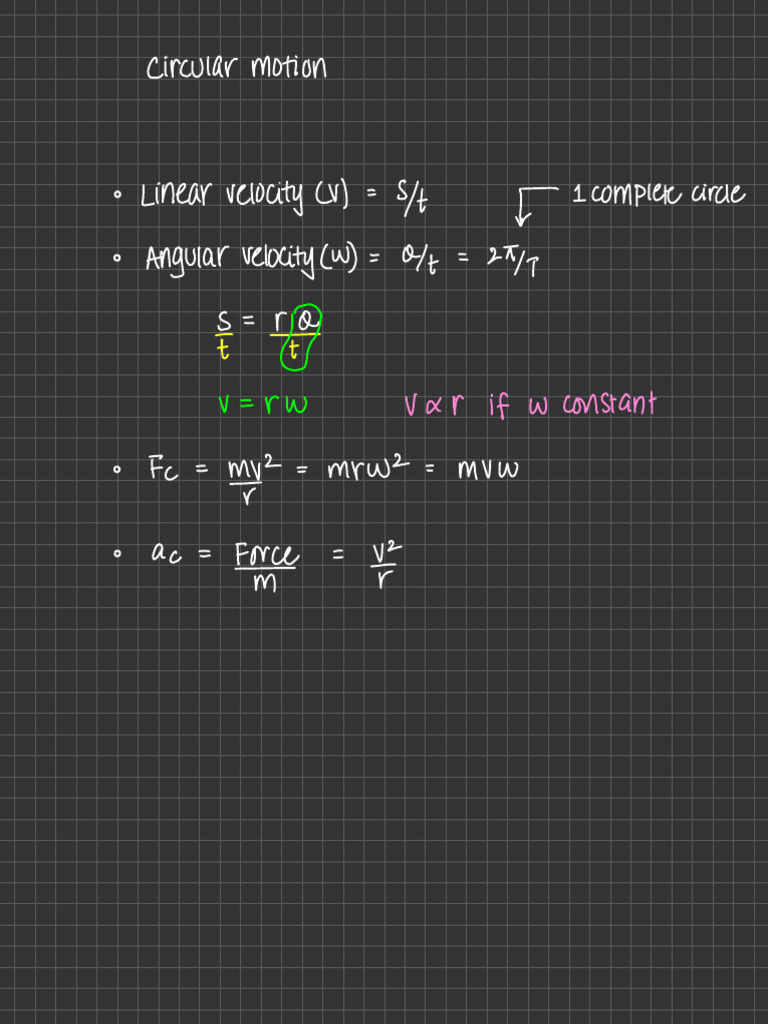 Circular motion
• Linear velocity (v) = s/t ← 1 complete circle
• Angular velocity (w) = θ/t = 2π/T
s/t = rθ/t
v = rw v ∝ r if w constant
• Fc = mv²/r = mrw² = mvw
• ac = Force/m = v²/r